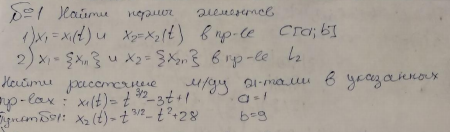 Б=1 Найти нормы элементов
1) x₁=x₁(t) и x₂=x₂(t) в пр-ве C[a;b]
2) x₁={xₙ} и x₂={x₂ₙ} в пр-ве l₂
Найти расстояние м/ду эл-тами в указанных
пр-вах: x₁(t)=t^{3/2}-3t+1 a=1
Пункт Б=1: x₂(t)=t^{3/2}-t²+28 b=9